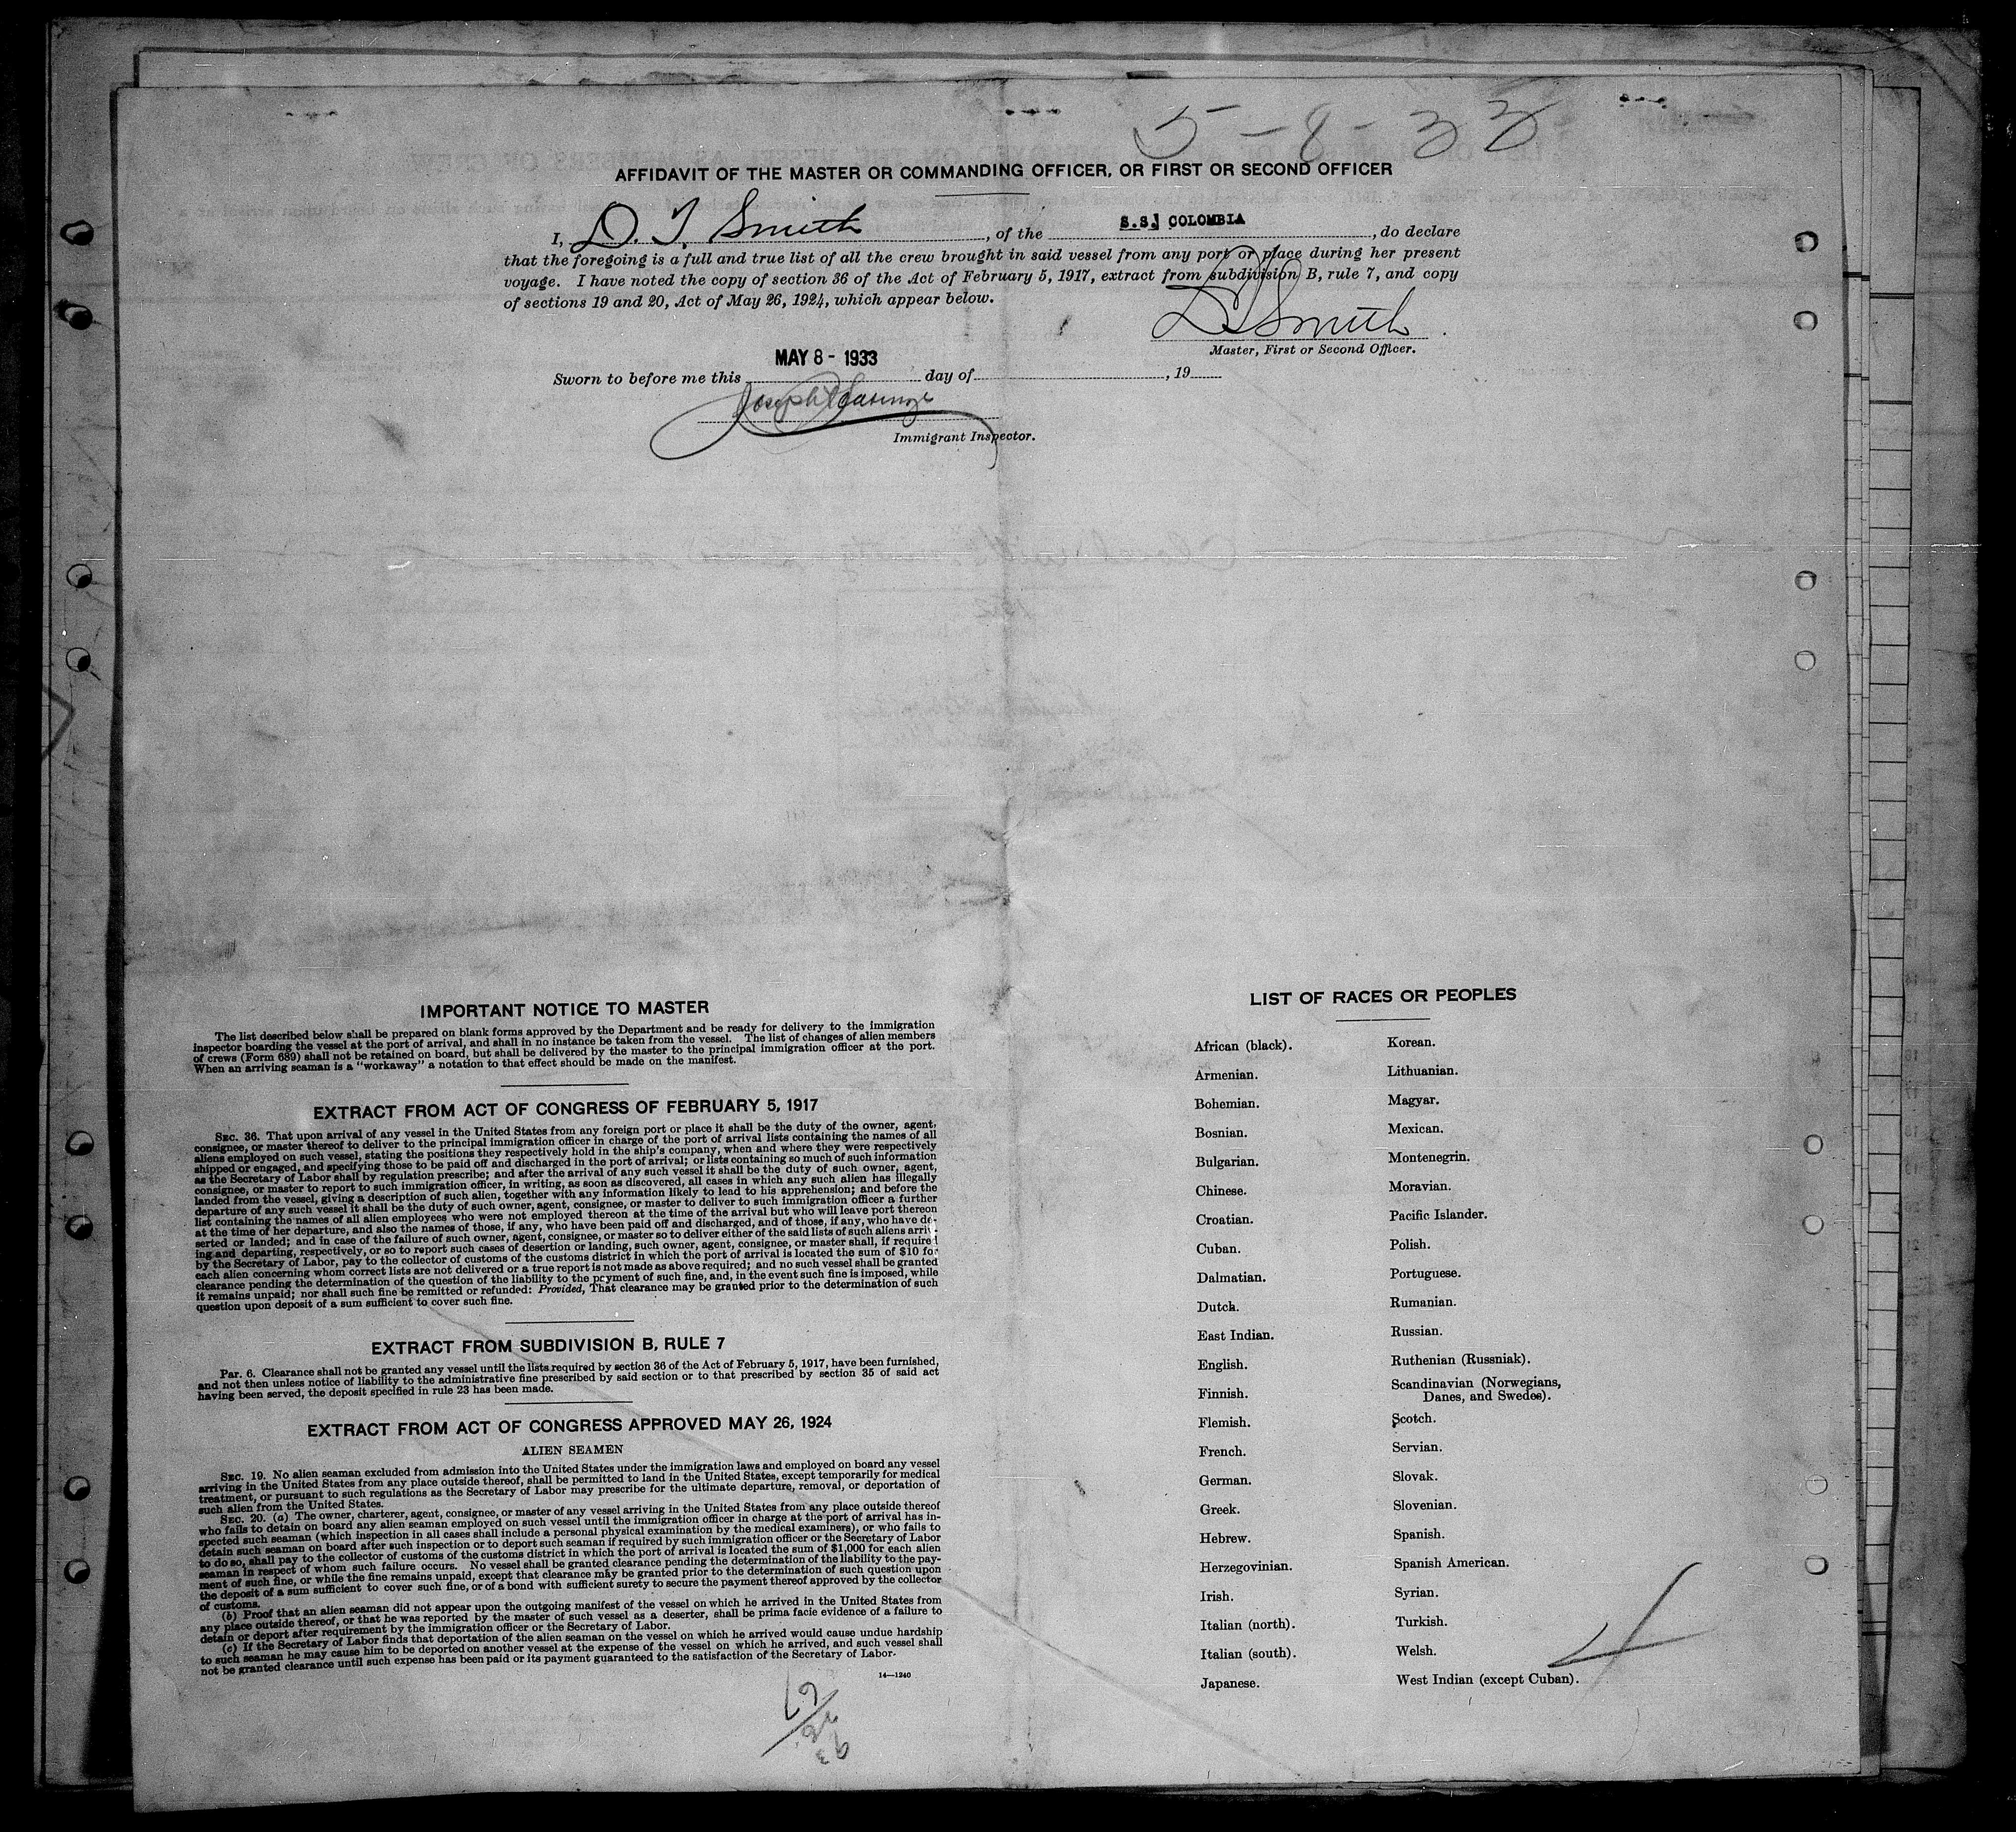 5-8-33
AFFIDAVIT OF THE MASTER OR COMMANDING OFFICER, OR FIRST OR SECOND OFFICER
I, D. T. Smith, of the S.S. COLOMBIA, do declare
that the foregoing is a full and true list of all the crew brought in said vessel from any port or place during her present
voyage. I have noted the copy of section 36 of the Act of February 5, 1917, extract from subdivision B, rule 7, and copy
of sections 19 and 20, Act of May 26, 1924, which appear below.
D T Smith
Master, First or Second Officer.
MAY 8 - 1933
Sworn to before me this day of , 19
Joseph
Immigrant Inspector.
IMPORTANT NOTICE TO MASTER
The list described below shall be prepared on blank forms approved by the Department and be ready for delivery to the immigration
inspector boarding the vessel at the port of arrival, and shall in no instance be taken from the vessel. The list of changes of alien members
of crews (Form 689) shall not be retained on board, but shall be delivered by the master to the principal immigration officer at the port.
When an arriving seaman is a "workaway" a notation to that effect should be made on the manifest.
EXTRACT FROM ACT OF CONGRESS OF FEBRUARY 5, 1917
SEC. 36. That upon arrival of any vessel in the United States from any foreign port or place it shall be the duty of the owner, agent,
consignee, or master thereof to deliver to the principal immigration officer in charge of the port of arrival lists containing the names of all
aliens employed on such vessel, stating the positions they respectively hold in the ship's company, when and where they were respectively
shipped or engaged, and specifying those to be paid off and discharged in the port of arrival; or lists containing so much of such information
as the Secretary of Labor shall by regulation prescribe; and after the arrival of any such vessel it shall be the duty of such owner, agent,
consignee, or master to report to such immigration officer, in writing, as soon as discovered, all cases in which any such alien has illegally
landed from the vessel, giving a description of such alien, together with any information likely to lead to his apprehension; and before the
departure of any such vessel it shall be the duty of such owner, agent, consignee, or master to deliver to such immigration officer a further
list containing the names of all alien employees who were not employed thereon at the time of the arrival but who will leave port thereon
at the time of her departure, and also the names of those, if any, who have been paid off and discharged, and of those, if any, who have de-
serted or landed; and in case of the failure of such owner, agent, consignee, or master so to deliver either of the said lists of such aliens arriv-
ing and departing, respectively, or so to report such cases of desertion or landing, such owner, agent, consignee, or master shall, if required
by the Secretary of Labor, pay to the collector of customs of the customs district in which the port of arrival is located the sum of $10 for
each alien concerning whom correct lists are not delivered or a true report is not made as above required; and no such vessel shall be granted
clearance pending the determination of the question of the liability to the payment of such fine, and, in the event such fine is imposed, while
it remains unpaid; nor shall such fine be remitted or refunded: Provided, That clearance may be granted prior to the determination of such
question upon deposit of a sum sufficient to cover such fine.
EXTRACT FROM SUBDIVISION B, RULE 7
PAR. 6. Clearance shall not be granted any vessel until the lists required by section 36 of the Act of February 5, 1917, have been furnished,
and not then unless notice of liability to the administrative fine prescribed by said section or to that prescribed by section 35 of said act
having been served, the deposit specified in rule 23 has been made.
EXTRACT FROM ACT OF CONGRESS APPROVED MAY 26, 1924
ALIEN SEAMEN
SEC. 19. No alien seaman excluded from admission into the United States under the immigration laws and employed on board any vessel
arriving in the United States from any place outside thereof, shall be permitted to land in the United States, except temporarily for medical
treatment, or pursuant to such regulations as the Secretary of Labor may prescribe for the ultimate departure, removal, or deportation of
such alien from the United States.
SEC. 20. (a) The owner, charterer, agent, consignee, or master of any vessel arriving in the United States from any place outside thereof
who fails to detain on board any alien seaman employed on such vessel until the immigration officer in charge at the port of arrival has in-
spected such seaman (which inspection in all cases shall include a personal physical examination by the medical examiners), or who fails to
detain such seaman on board after such inspection or to deport such seaman if required by such immigration officer or the Secretary of Labor
to do so, shall pay to the collector of customs of the customs district in which the port of arrival is located the sum of $1,000 for each alien
seaman in respect of whom such failure occurs. No vessel shall be granted clearance pending the determination of the liability to the pay-
ment of such fine, or while the fine remains unpaid, except that clearance may be granted prior to the determination of such question upon
the deposit of a sum sufficient to cover such fine, or of a bond with sufficient surety to secure the payment thereof approved by the collector
of customs.
(b) Proof that an alien seaman did not appear upon the outgoing manifest of the vessel on which he arrived in the United States from
any place outside thereof, or that he was reported by the master of such vessel as a deserter, shall be prima facie evidence of a failure to
detain or deport after requirement by the immigration officer or the Secretary of Labor.
(c) If the Secretary of Labor finds that deportation of the alien seaman on the vessel on which he arrived would cause undue hardship
to such seaman he may cause him to be deported on another vessel at the expense of the vessel on which he arrived, and such vessel shall
not be granted clearance until such expense has been paid or its payment guaranteed to the satisfaction of the Secretary of Labor.
14—1240
LIST OF RACES OR PEOPLES
African (black).
Armenian.
Bohemian.
Bosnian.
Bulgarian.
Chinese.
Croatian.
Cuban.
Dalmatian.
Dutch.
East Indian.
English.
Finnish.
Flemish.
French.
German.
Greek.
Hebrew.
Herzegovinian.
Irish.
Italian (north).
Italian (south).
Japanese.
Korean.
Lithuanian.
Magyar.
Mexican.
Montenegrin.
Moravian.
Pacific Islander.
Polish.
Portuguese.
Rumanian.
Russian.
Ruthenian (Russniak).
Scandinavian (Norwegians,
Danes, and Swedes).
Scotch.
Servian.
Slovak.
Slovenian.
Spanish.
Spanish American.
Syrian.
Turkish.
Welsh.
West Indian (except Cuban).